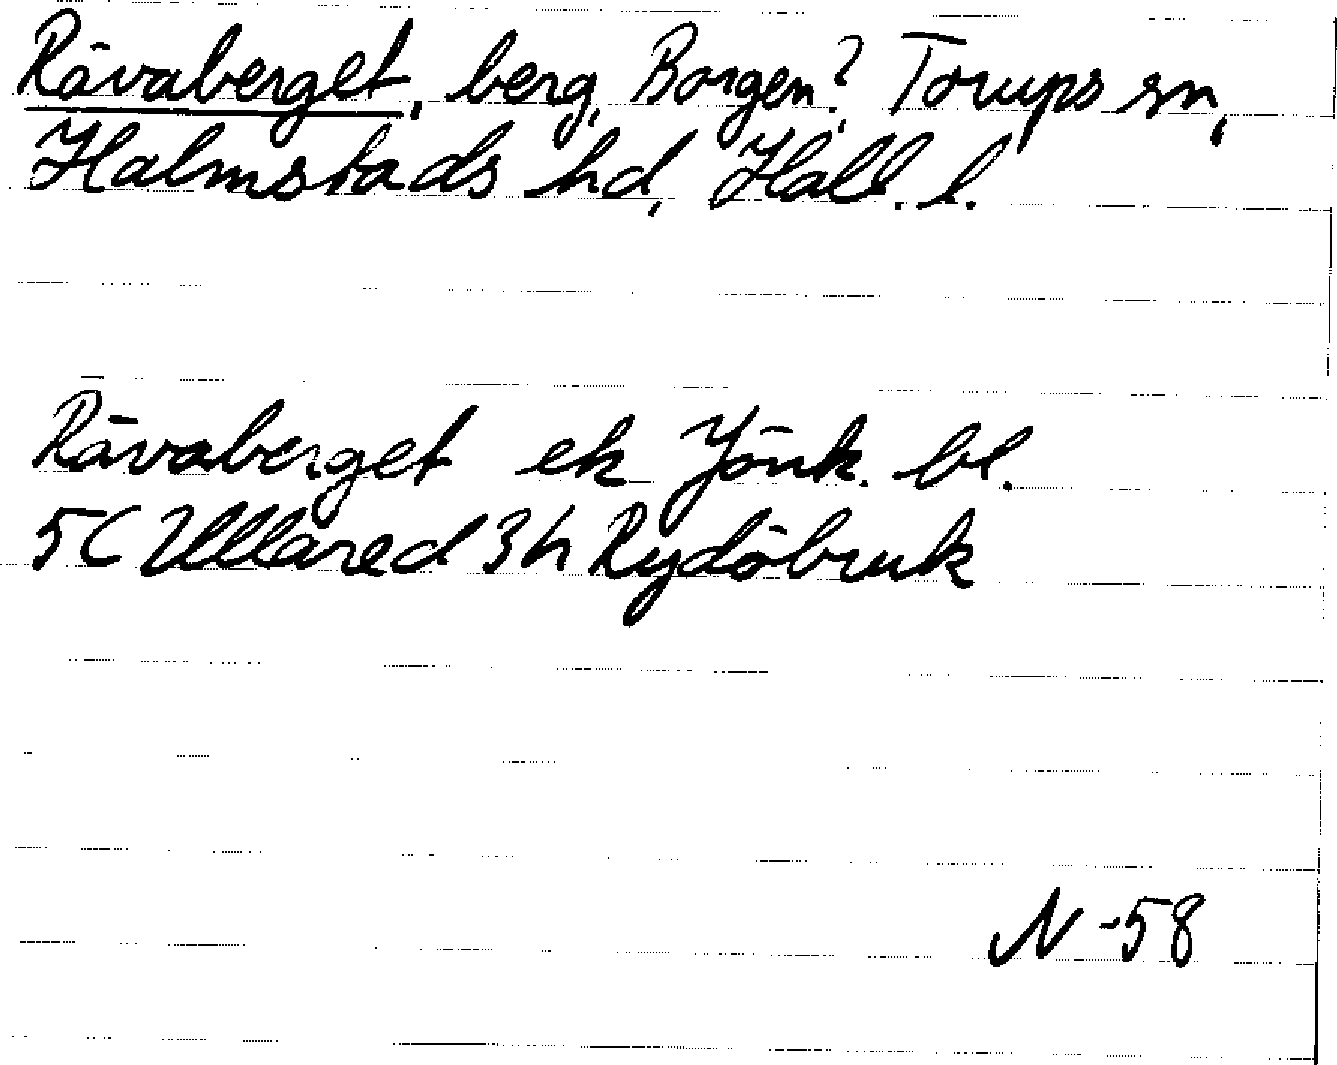 Rävaberget, berg, Borgen?, Torups sn,
Halmstads hd, Hall. l.
Rävaberget ek Jönk. bl.
5C Ullared 3h Rydöbruk
N -58